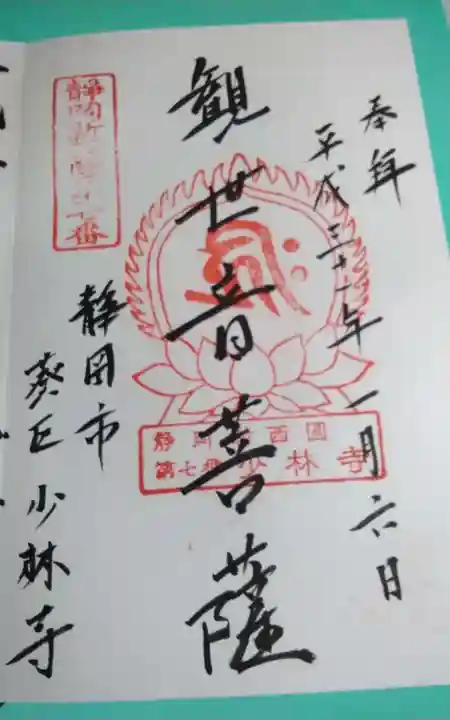 奉拜
平成三十一年一月六日
観世音菩薩
静岡新西国
第七番少林寺
静岡市
葵区少林寺